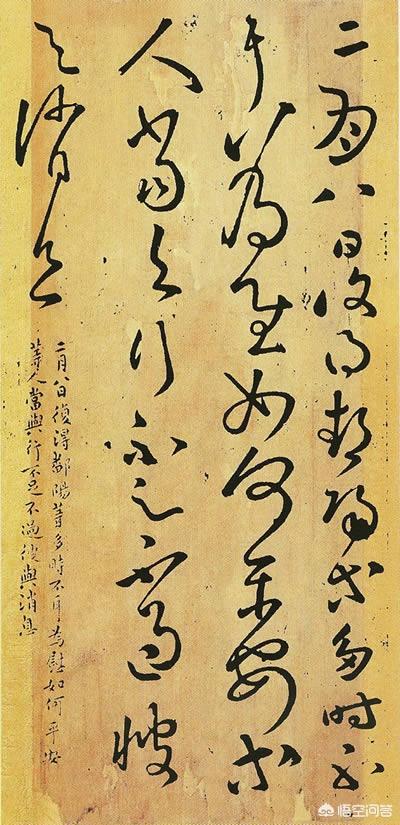 二月八日復得鄱陽等多時不
耳為慰如何平安等
人當與行不足不過彼
與消息
二月八日復得鄱陽等多時不耳為慰如何平安
等人當與行不足不過彼與消息
悟空问答